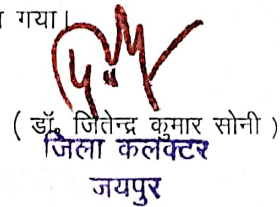 गया।
( डॉ. जितेन्द्र कुमार सोनी )
जिला कलक्टर
जयपुर